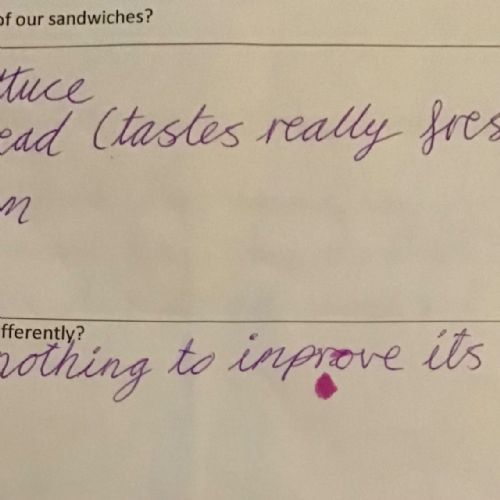 of our sandwiches?
ttuce
ead (tastes really fres
m
fferently?
nothing to improve its